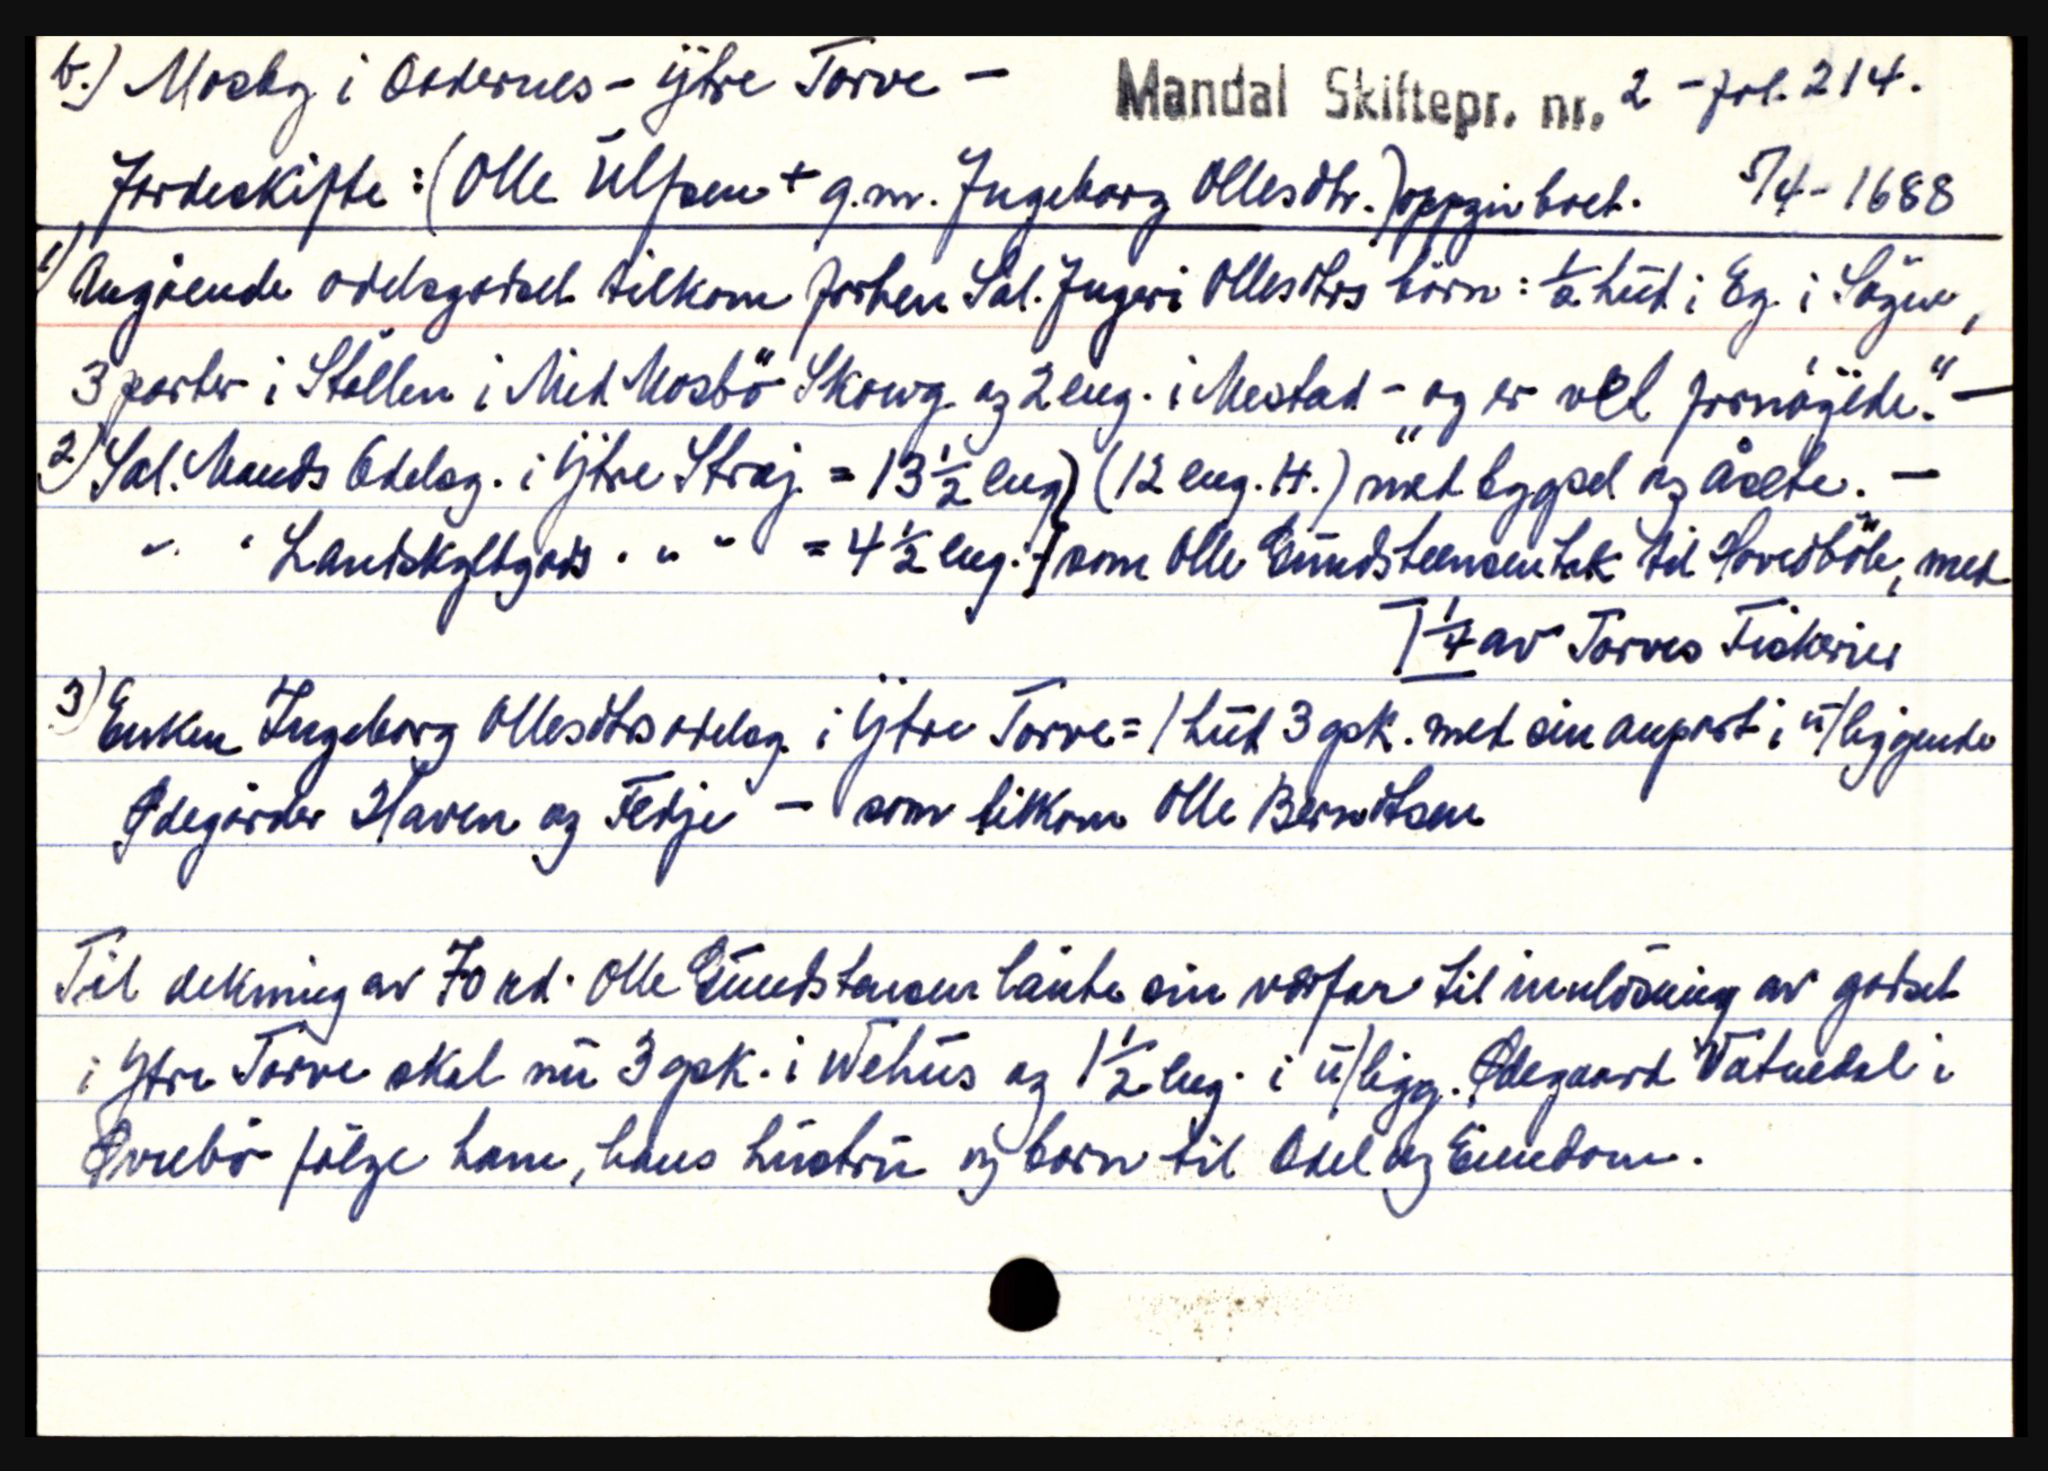 b.) Mosby i Oddernes - ÿtre Torve - Mandal Skiftepr. nr. 2 - fol. 214.
Jordeskifte : (Olle Ulfsen + g.m. Ingeborg Ollesdtr.) oppgir boet. 5/4 - 1688
1) Angående odelsgodset tilkom forhen Sal. Ingeri Ollesdtrs børn : ½ hud i Eg i Søgne,
3 parter i Støllen i Med Mosbö Skowg og 2 eng. i Mestad - "og er vel fornöÿede." -
2) Sal. Mands Odelsg. i ÿtre Straj = 13 ½ eng } (12 eng. H.) med bygsel og åsete. -
" " Landskyldgods . " " = 4 ½ eng. } som Olle Gundsteensen tok til Hovedböle, med
1/4 av Torves Fiskerier
3) Enken Ingeborg Ollesdtrs odelsg i ÿtre Torve = 1 hud 3 gsk. med sin anpart i u/liggende
Ødegårder Haven og Fedje - som tilkom Olle Berndtsen
Til dekning av 70 rd. Olle Gundstensen lånte sin verfar til innlösning av godset
i Ytre Torve skal nu 3 gsk. i Wehus og 1 ½ eng. i u/ligg. Ødegaard Vatnedal i
Øvrebö følge ham, hans hustru og born til Odel og Eiendom.